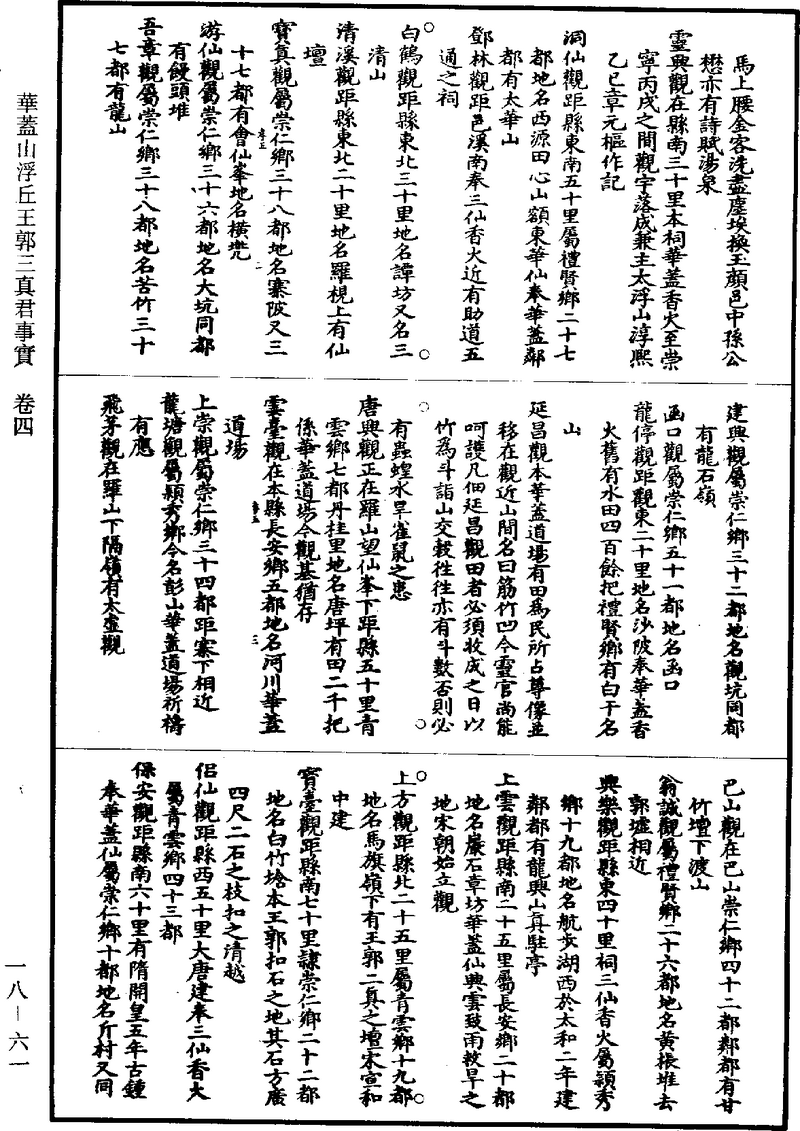 馬上腰金客洗盡塵埃換玉顏邑中孫公
懋亦有詩賦湯泉
靈興觀在縣南三十里本祠華蓋香火至崇
寧丙戌之間觀宇落成兼主太浮山淳熙
乙巳章元樞作記
洞仙觀距縣東南五十里屬禮賢鄉二十七
都地名西源田心山額東華仙奉華蓋鄰
都有太華山
鄧林觀距邑溪南奉三仙香火近有助道五
通之祠
白鶴觀距縣東北三十里地名譚坊又名三
清山
清溪觀距縣東北二十里地名羅梘上有仙
壇
寶真觀屬崇仁鄉三十八都地名寨陂又三
十七都有會仙峯地名橫䒷
游仙觀屬崇仁鄉三十六都地名大坑同都
有饅頭堆
吾章觀屬崇仁鄉三十八都地名苦竹三十
七都有龍山
建興觀屬崇仁鄉三十二都地名觀坑同都
有龍石嶺
函口觀屬崇仁鄉五十一都地名函口
龍停觀距觀東二十里地名沙陂奉華蓋香
火舊有水田四百餘把禮賢鄉有白干名
山
延昌觀本華蓋道場有田為民所占尊像並
移在觀近山間名曰筋竹凹今靈官尚能
呵護凡佃延昌觀田者必須收成之日以
竹為斗詣山交穀往往亦有斗數否則必
有蟲蝗水旱雀鼠之患
唐興觀正在羅山望仙峯下距縣五十里青
雲鄉七都丹桂里地名唐坪有田二千把
係華蓋道場今觀基猶存
雲臺觀在本縣長安鄉五都地名河川華蓋
道場
上崇觀屬崇仁鄉三十四都距寨下相近
龍塘觀屬穎秀鄉今名彭山華蓋道場祈禱
有應
飛茅觀在羅山下隔嶺有太虛觀
巴山觀在巴山崇仁鄉四十二都鄰都有甘
竹壇下渡山
翁誠觀屬禮賢鄉二十六都地名黃棖堆去
郭墟相近
興樂觀距縣東四十里祠三仙香火屬穎秀
鄉十九都地名航步湖西於太和二年建
鄰都有龍興山真駐亭
上雲觀距縣南二十五里屬長安鄉二十都
地名巖石章坊華蓋仙興雲致雨救旱之
地宋朝始立觀
上方觀距縣北二十五里屬青雲鄉十九都
地名馬旗嶺下有王郭二真之壇宋宣和
中建
寶臺觀距縣南七十里隷崇仁鄉二十二都
地名白竹塆本王郭扣石之地其石方廣
四尺二石之枝扣之清越
侶仙觀距縣西五十里大唐建奉三仙香火
屬青雲鄉四十三都
保安觀距縣南六十里有隋開皇五年古鍾
奉華蓋仙屬崇仁鄉十都地名斤村又同
華蓋山浮丘王郭三真君事實 卷四
一八－六一